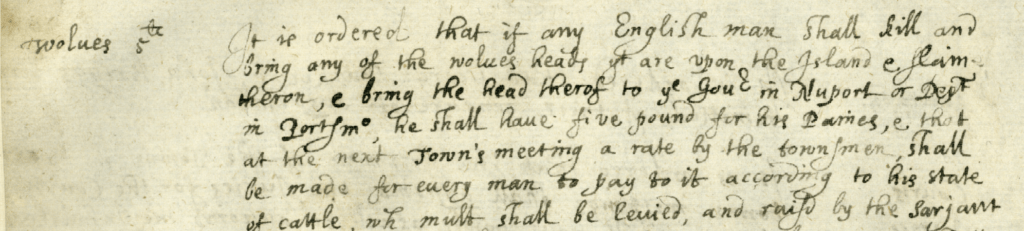 wolves 5th
It is ordered that if any English man shall kill and
bring any of the wolves heads yt are vpon the Island & slain
theron, & bring the head therof to ye Gour in Nuport or Dept
in Portsmo, he shall haue five pound for his Paines, & that
at the next Town's meeting a rate by the townsmen, shall
be made for every man to pay to it according to his state
of cattle, wh mult shall be levied, and raisd by the Sarjant